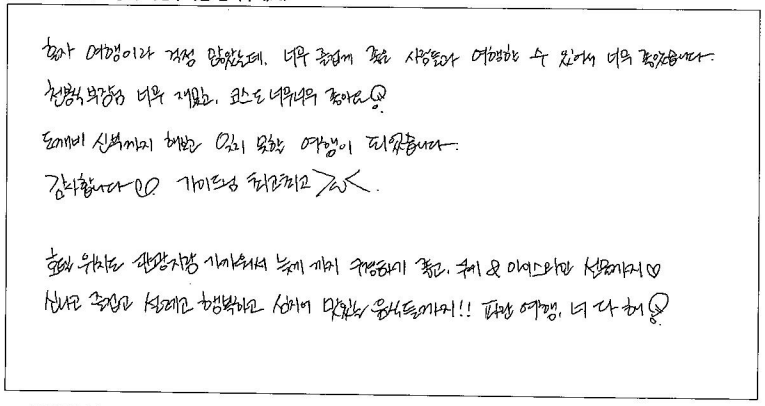 혼자 여행이라 걱정 많았는데, 너무 즐겁게 좋은 사람들과 여행할 수 있어서 너무 좋았습니다.
천병식 부장님 너무 재밌고, 코스도 너무너무 좋아요
도깨비 신부까지 해보고 잊지 못할 여행이 되었습니다.
감사합니다♡ 가이드님 최고최고 >ω<.
호텔 위치도 관광지랑 가까워서 늦게 까지 구경하기 좋고, 쿠키 & 아이스와인 선물까지♡
신나고 즐겁고 설레고 행복하고 심지어 맛있는 음식들까지!! 퍼펙 여행, 너 다 해